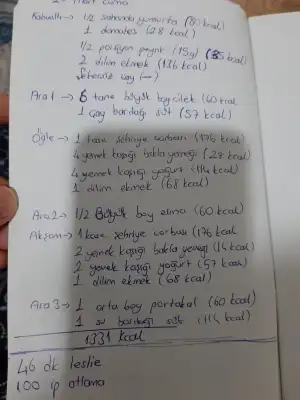 Mart cuma
Kahvaltı → 1/2 sahanda yumurta (80 kcal)
1 domates (28 kcal)
1/2 porsiyon peynir (15g) (35 kcal)
2 dilim ekmek (136 kcal)
Şekersiz çay (—)
Ara 1 → 6 tane büyük boy çilek (60 kcal
1 çay bardağı süt (57 kcal)
Öğle → 1 kase şehriye çorbası (176 kcal)
4 yemek kaşığı bakla yemeği (28 kcal)
4 yemek kaşığı yoğurt (114 kcal)
1 dilim ekmek (68 kcal)
Ara 2 → 1/2 Büyük boy elma (60 kcal)
Akşam → 1 kase şehriye çorbası (176 kcal
2 yemek kaşığı bakla yemeği (14 kcal)
2 yemek kaşığı yoğurt (57 kcal)
1 dilim ekmek (68 kcal)
Ara 3 → 1 orta boy portakal (60 kcal)
1 su bardağı süt (114 kcal)
1331 kcal
46 dk leslie
100 ip atlama